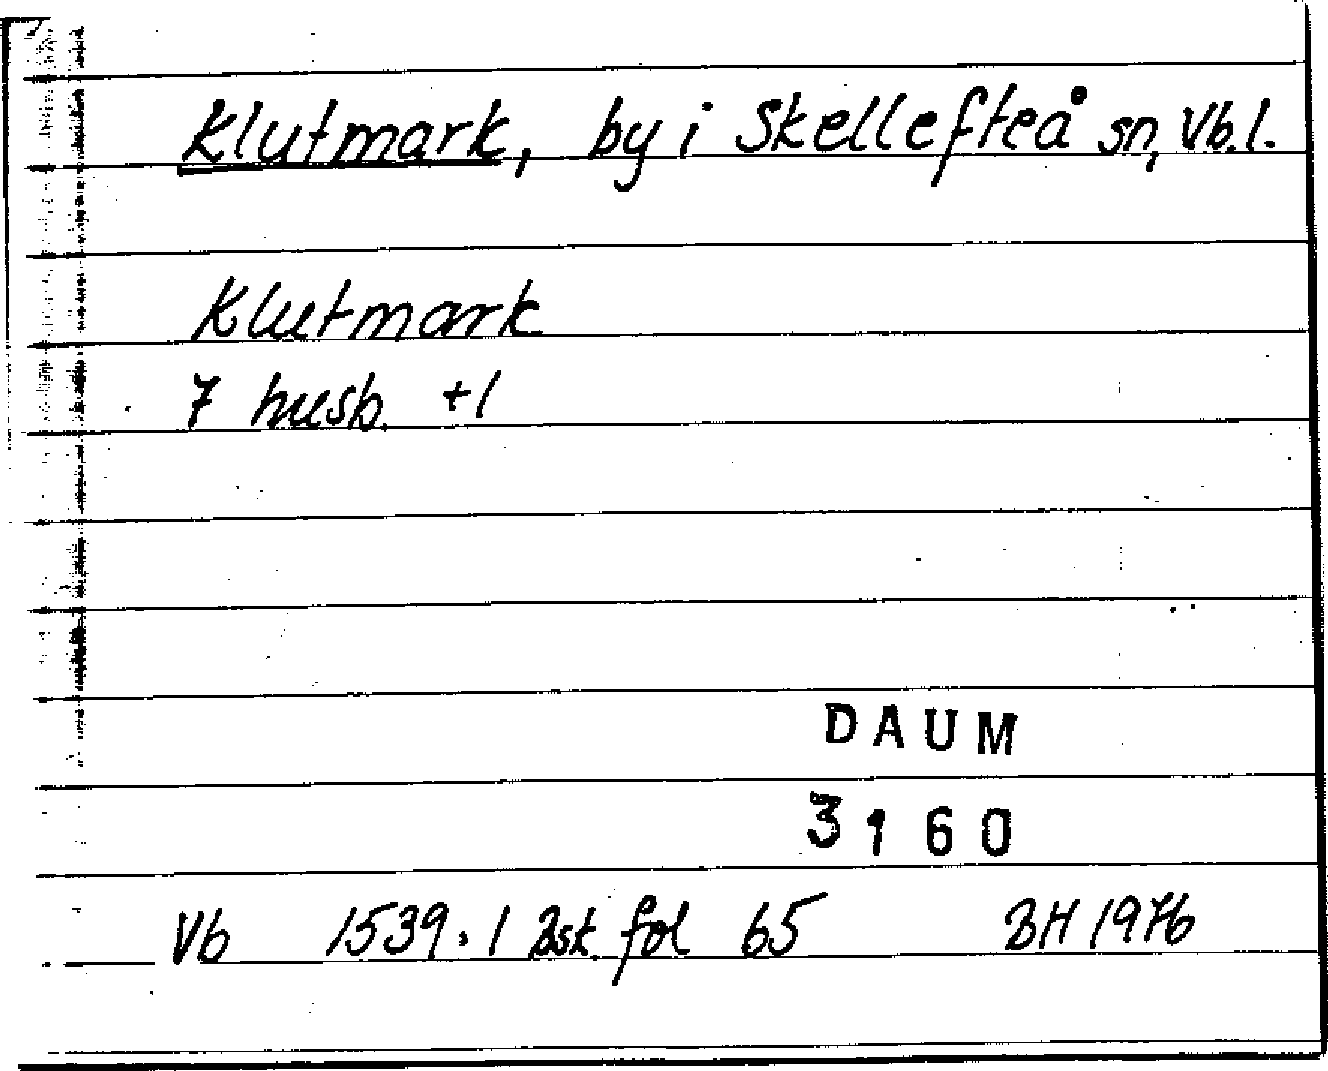 Klutmark, by i Skellefteå sn, Vb.l.
Klutmark
7 husb. +1
DAUM
3160
Vb 1539:1 2sk. fol 65 BH 1976